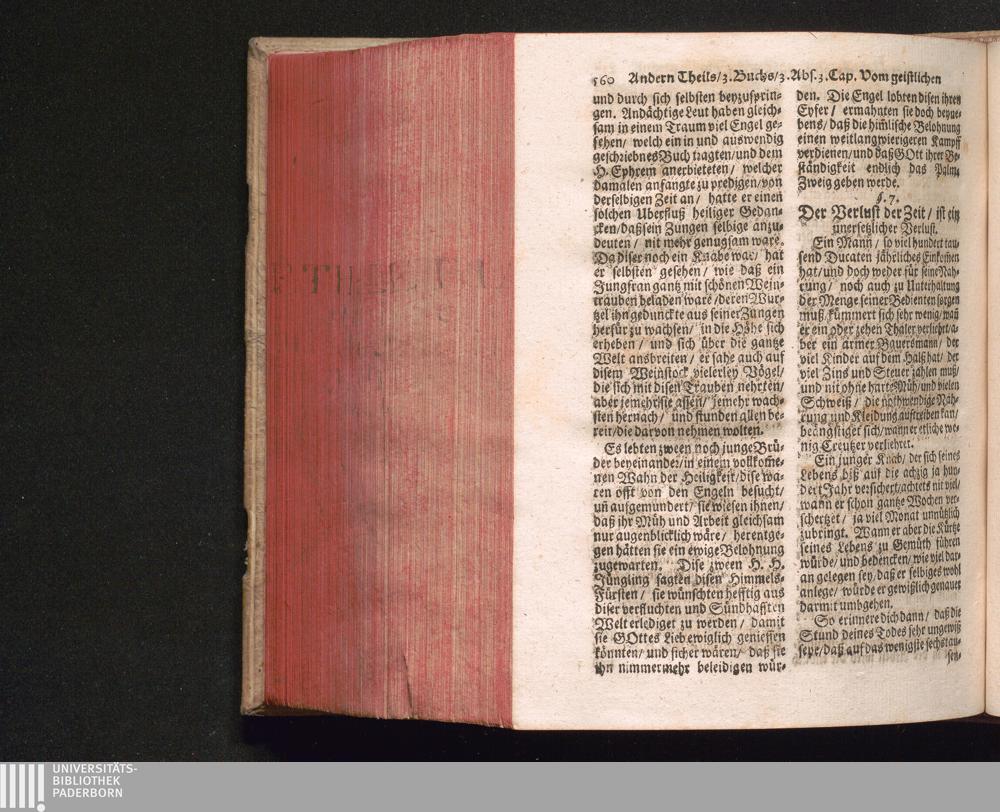 560 Andern Theils/3. Buchs/3. Abs. 3. Cap. Vom geistlichen
und durch sich selbsten beyzusprin-
gen. Andächtige Leut haben gleich-
sam in einem Traum viel Engel ge-
sehen/ welch ein in und auswendig
geschriebnes Buch tragten/und dem
H. Ephrem anerbieteten/ welcher
damalen anfangte zu predigen/von
derselbigen Zeit an/ hatte er einen
solchen Uberfluß heiliger Gedan-
cken/daß sein Zungen selbige anzu-
deuten/ nit mehr genugsam ware.
Da diser noch ein Knabe war/ hat
er selbsten gesehen/ wie daß ein
Jungfrau gantz mit schönen Wein-
trauben beladen ware/deren Wur-
tzel ihn geduncktе aus seiner Zungen
herfür zu wachsen/ in die Höhe sich
erheben/ und sich über die gantze
Welt ausbreiten/ er sahe auch auf
disem Weinstock vielerley Vögel/
die sich mit disen Trauben nehrten/
aber jemehr sie assen/ jemehr wach-
sten hernach/ und stunden allen be-
reit/die darvon nehmen wolten.
Es lebten zween noch junge Brü-
der beyeinander/in einem vollkom̃e-
nen Wahn der Heiligkeit/dise wa-
ren offt von den Engeln besucht/
uñ aufgemundert/ sie wiesen ihnen/
daß ihr Müh und Arbeit gleichsam
nur augenblicklich wäre/ herentge-
gen hätten sie ein ewige Belohnung
zugewarten. Dise zween H. H.
Jüngling sagten disen Himmels-
Fürsten/ sie wünschten hefftig aus
diser verfluchten und Sündhafften
Welt erlediget zu werden/ damit
sie GOttes Lieb ewiglich geniessen
könnten/ und sicher wären/ daß sie
ihn nimmermehr beleidigen wür-
den. Die Engel lobten disen ihren
Eyfer/ ermahnten sie doch beyne-
bens/ daß die him̃lische Belohnung
einen weitlangwierigeren Kampff
verdienen/und daß GOtt ihrer Be-
ständigkeit endlich das Palm-
Zweig geben werde.
§. 7.
Der Verlust der Zeit/ ist ein
unersetzlicher Verlust.
Ein Mann/ so viel hundert tau-
send Ducaten jährliches Einkom̃en
hat/und doch weder für seine Nah-
rung/ noch auch zu Unterhaltung
der Menge seiner Bedienten sorgen
muß/kümmert sich sehr wenig/wañ
er ein oder zehen Thaler verliehrt/a-
ber ein armer Bauersmann/ der
viel Kinder auf dem Halß hat/ der
viel Zins und Steuer zahlen muß/
und nit ohne harte Müh/und vielen
Schweiß/ die nothwendige Nah-
rung und Kleidung auftreiben kan/
beängstiget sich/wann er etliche we-
nig Creutzer verliehret.
Ein junger Knab/ der sich seines
Lebens biß auf die achzig ja hun-
dert Jahr versichert/achtets nit viel/
wann er schon gantze Wochen ver-
schertzet/ ja viel Monat unnützlich
zubringt. Wann er aber die Kürtze
seines Lebens zu Gemüth führen
würde/ und bedencken/ wie viel dar-
an gelegen sey/daß er selbiges wohl
anlege/ würde er gewißlich genauer
darmit umbgehen.
So erinnere dich dann/ daß die
Stund deines Todes sehr ungewiß
seye/daß auf das wenigste sechs tau-
sen-
UNIVERSITÄTS-
BIBLIOTHEK
PADERBORN